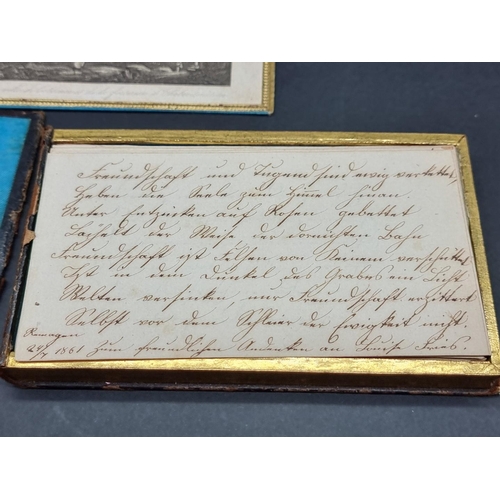 Freundschaft und Tugend sind ewig verkettet,
Heben die Seele zum Himmel hinan.
Unter Entzücken auf Rosen gebettet
Lächelt der Weise der dornichten Bahn
Freundschaft ist Felsen von Keinem verschüttet
Ist in dem Dunkel des Grabes ein Licht
Welten versinken, nur Freundschaft erzittert
Selbst vor dem Schleier der Ewigkeit nicht.
Remagen
1861 Zum freundlichen Andenken an Louise Fries